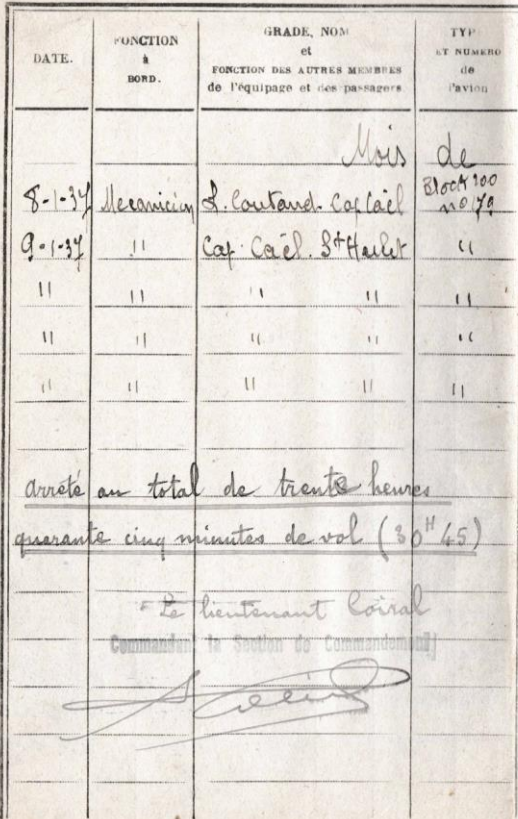 DATE.
FONCTION
à
BORD.
GRADE, NOM
et
FONCTION DES AUTRES MEMBRES
de l'équipage et des passagers
TYP
ET NUMERO
de
l'avion
Mois de
8-1-37 Mecanicien S. Coutand. Cap Caël Block 200
no 170
9-1-37 " Cap. Caël. St " "
" " " " "
" " " " "
" " " " "
arrêté au total de trente heures
quarante cinq minutes de vol (30H 45)
Le lieutenant Coiral
Commandant la Section de Commandement